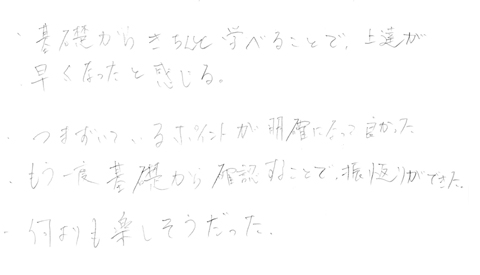 ・基礎からきちんと学べることで、上達が
早くなったと感じる。
・つまずいているポイントが明確になって良かった
・もう一度基礎から確認することで、振り返りができた。
・何よりも楽しそうだった。